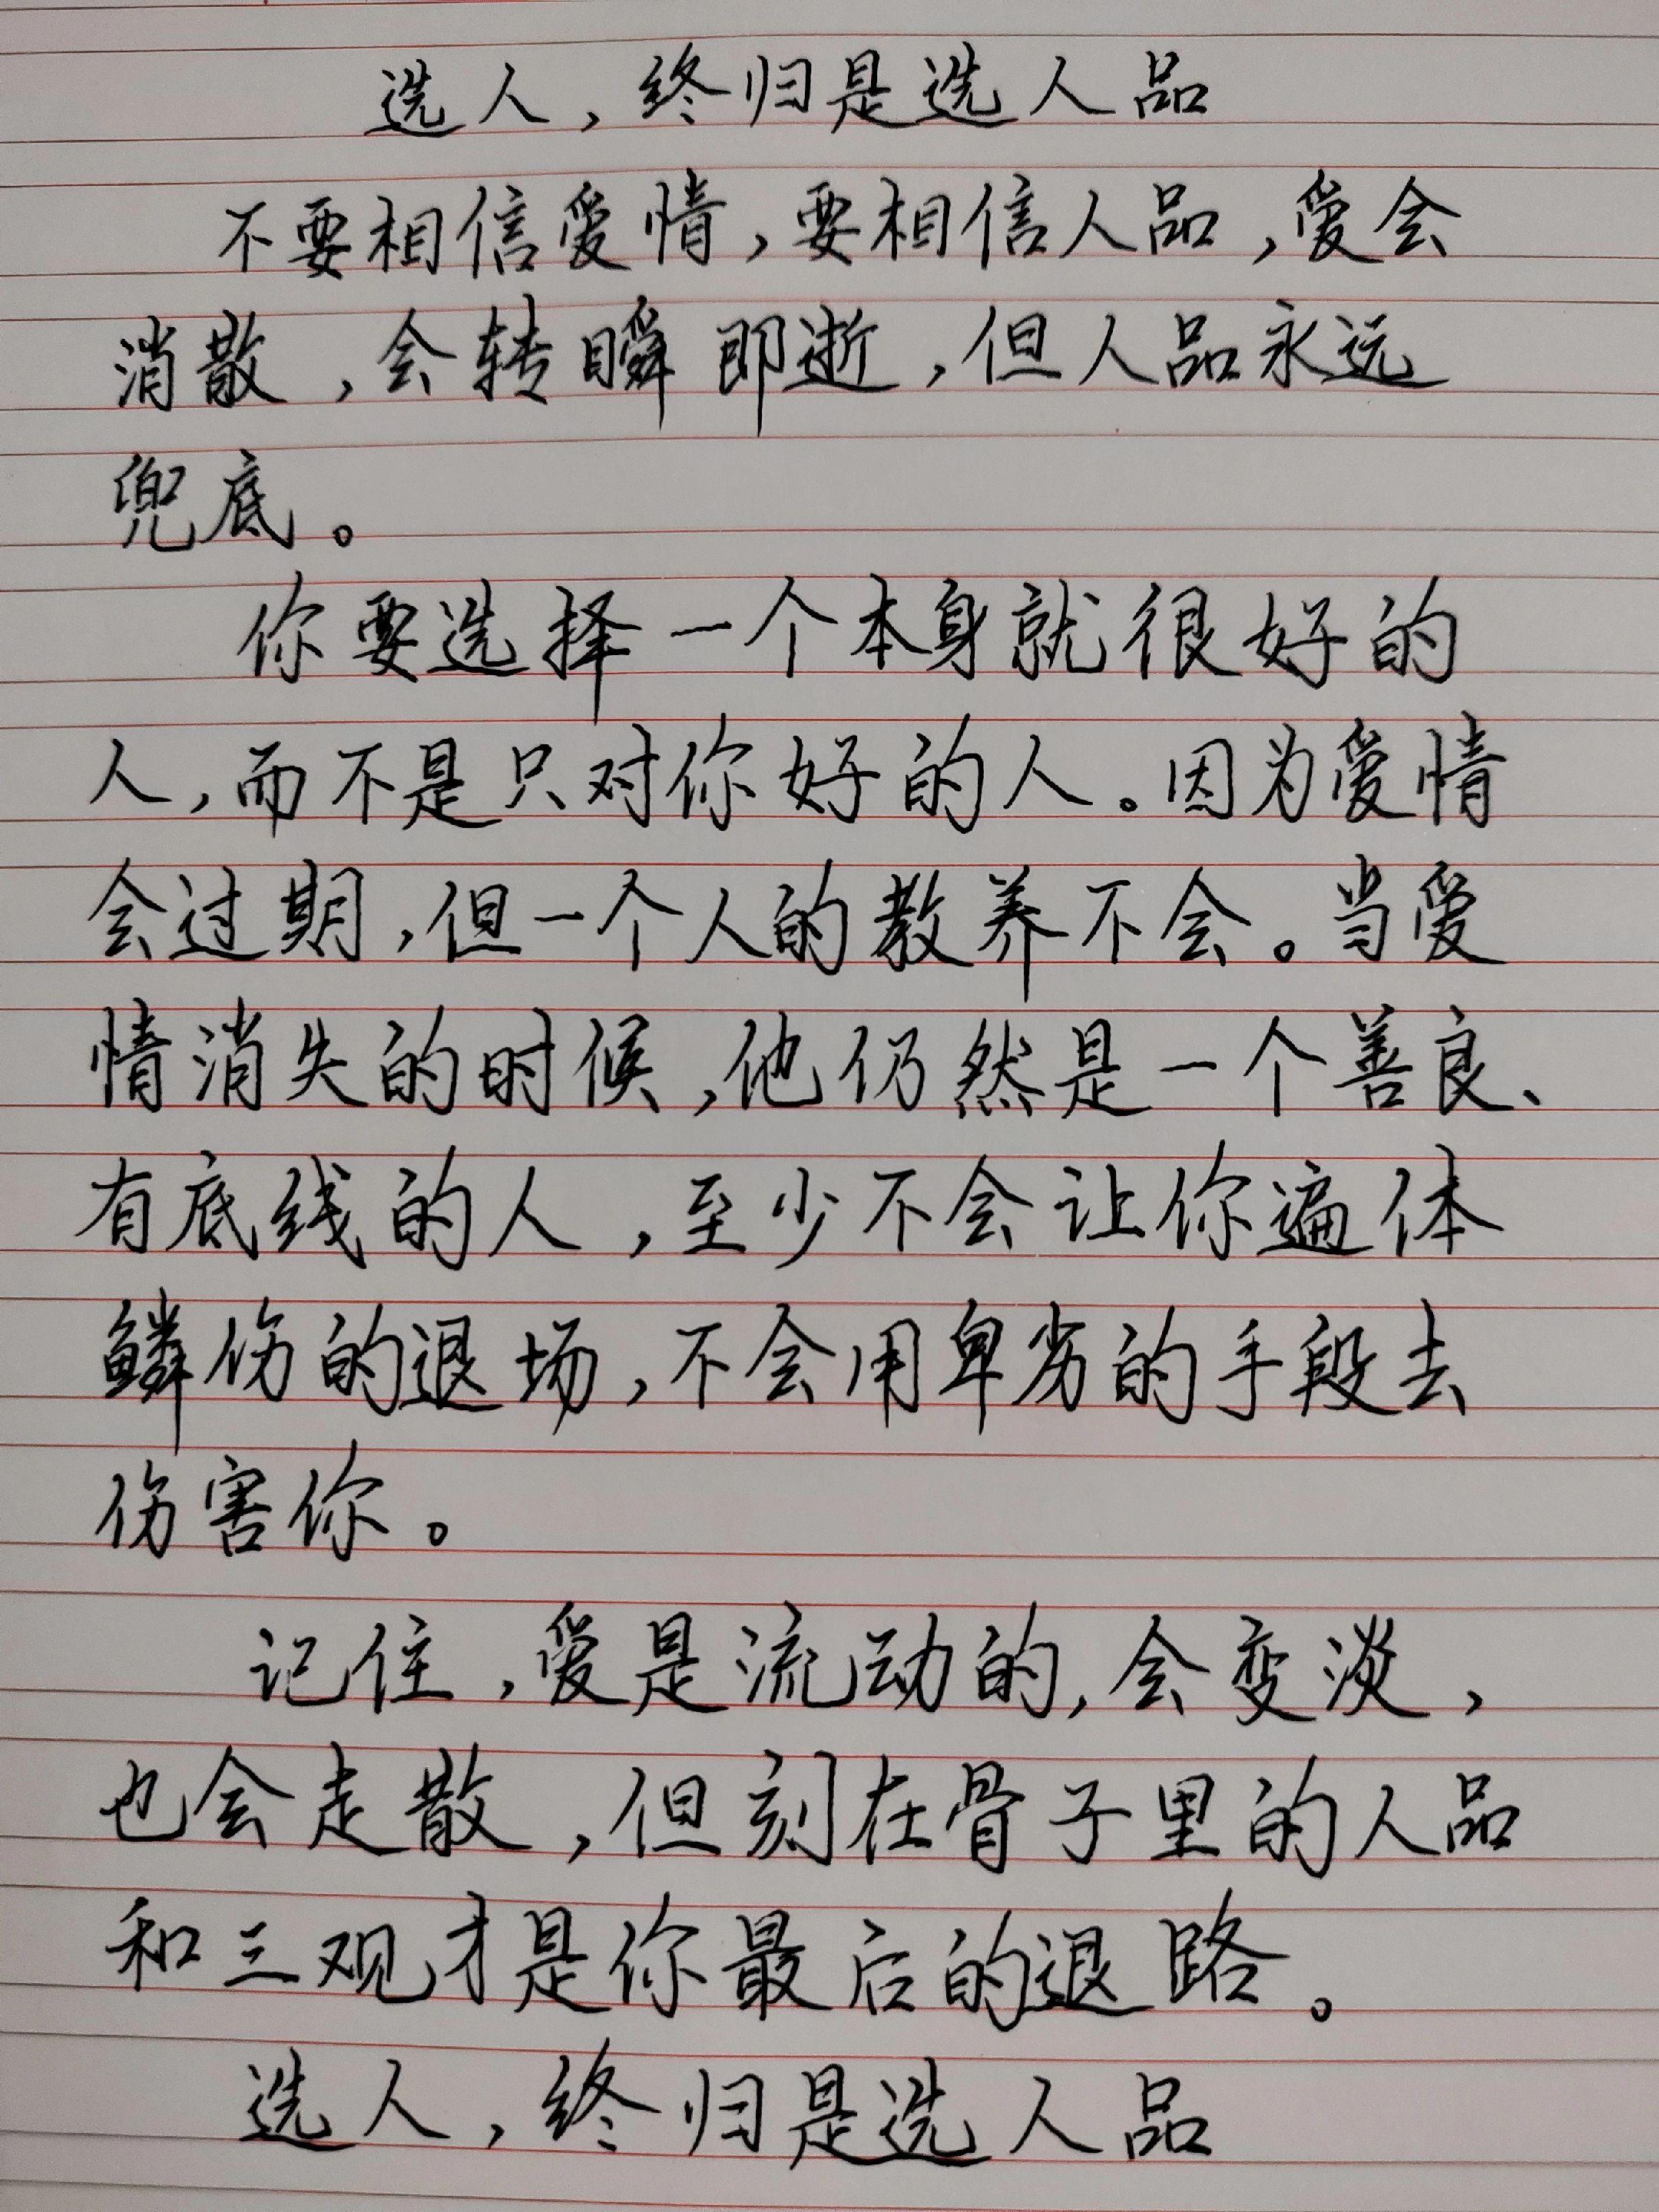 选人，终归是选人品
不要相信爱情，要相信人品，爱会
消散，会转瞬即逝，但人品永远
兜底。
你要选择一个本身就很好的
人，而不是只对你好的人。因为爱情
会过期，但一个人的教养不会。当爱
情消失的时候，他仍然是一个善良、
有底线的人，至少不会让你遍体
鳞伤的退场，不会用卑劣的手段去
伤害你。
记住，爱是流动的，会变淡，
也会走散，但刻在骨子里的人品
和三观才是你最后的退路。
选人，终归是选人品